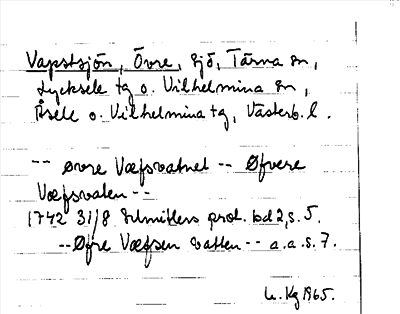 Vapstsjön, Övre, sjö, Tärna sn,
Lycksele tg o. Vilhelmina sn,
Åsele o. Vilhelmina tg, Västerb. l.
-- øvre Væfsvatnet -- Øfvere
Væfsvaten --
1742 31/8 Schnitlers prot. bd 2, s. 5.
-- Øfre Væfsen Vatten -- a.a.s. 7.
Kg 1965.